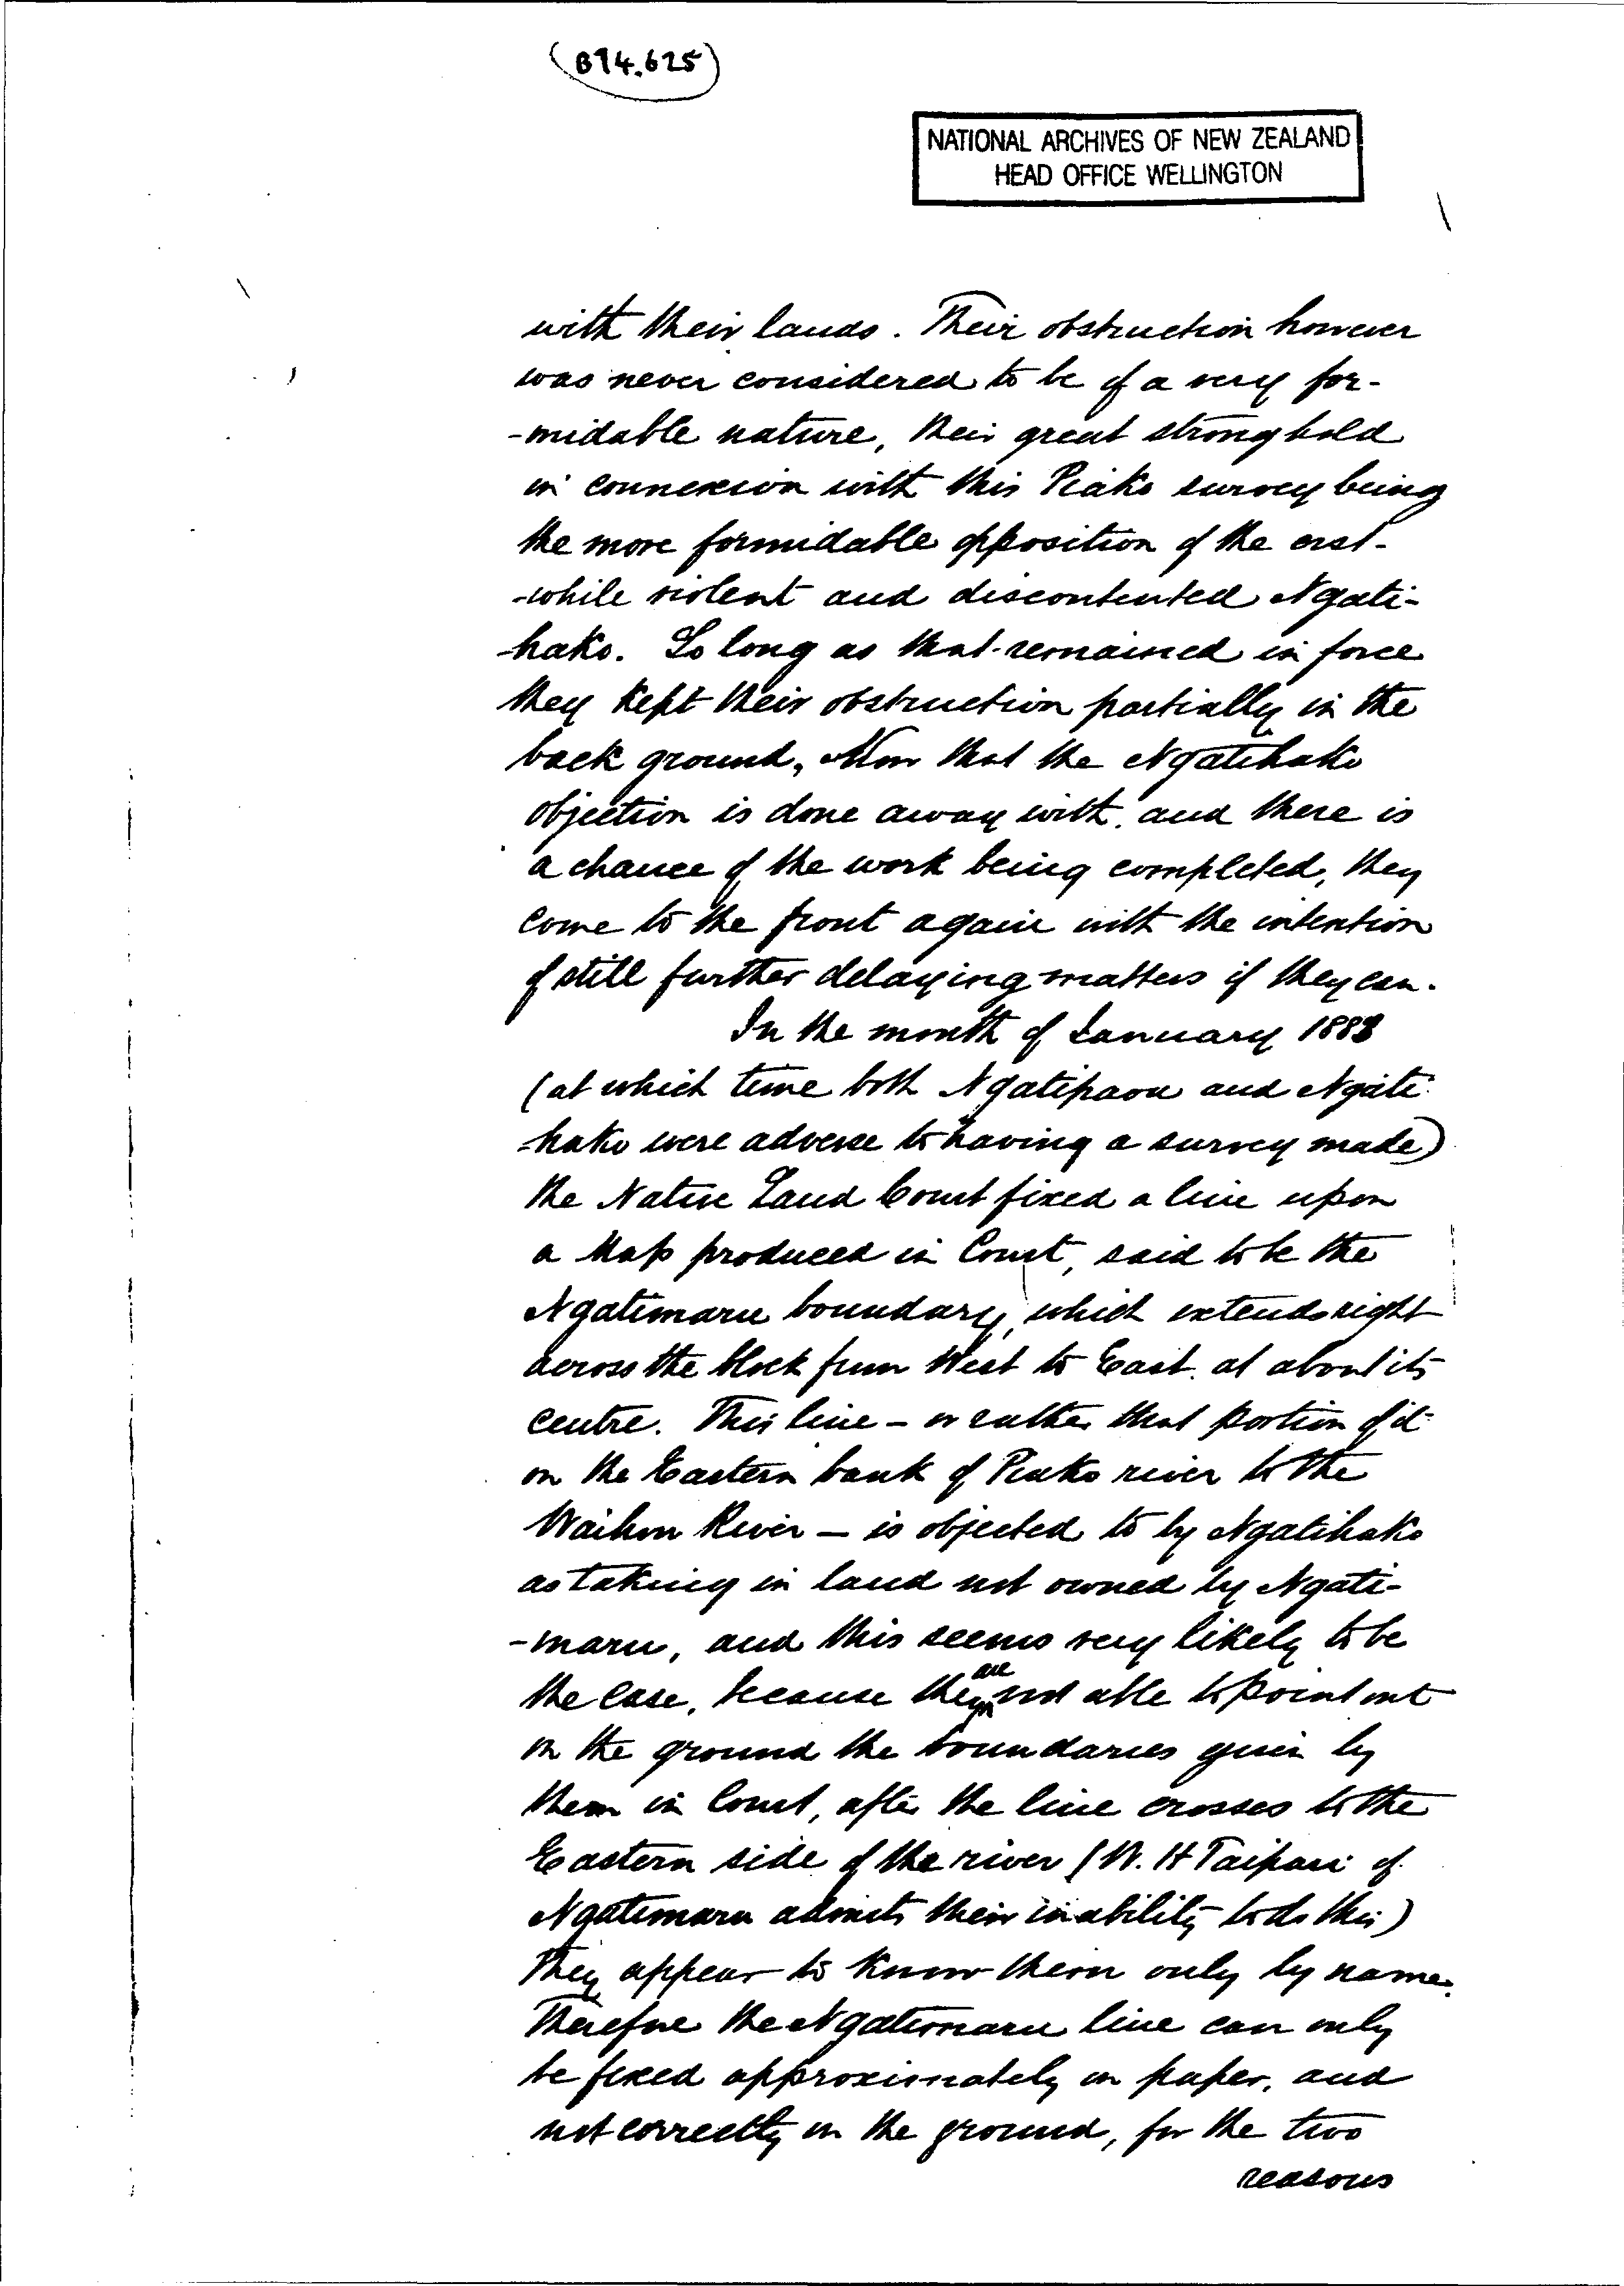 (B94.625)
NATIONAL ARCHIVES OF NEW ZEALAND
HEAD OFFICE WELLINGTON
with their lands. Their obstruction however
was never considered to be of a very for-
-midable nature, their great stronghold
in connexion with this Piako survey being
the more formidable opposition of the erst-
-while violent and discontented Ngati-
-hako. So long as that remained in force
they kept their obstruction partially in the
back ground. Now that the Ngatihako
objection is done away with, and there is
a chance of the work being completed, they
come to the front again with the intention
of still further delaying matters if they can.
In the month of January 1883
(at which time both Ngatipaoa and Ngati-
-hako were adverse to having a survey made)
the Native Land Court fixed a line upon
a Map produced in Court, said to be the
Ngatimaru boundary, which extends right
across the block from West to East, at about its
centre. This line – or rather that portion of it
on the Eastern bank of Piako river to the
Waihou River – is objected to by Ngatihako
as taking in land not owned by Ngati-
-maru, and this seems very likely to be
the case, because they are not able to point out
on the ground the boundaries given by
them in Court, after the line crosses to the
Eastern side of the river (W. H Taipari of
Ngatimaru admits their inability to do this)
They appear to know them only by name.
Therefore the Ngatimaru line can only
be fixed approximately on paper, and
not correctly on the ground, for the two
reasons